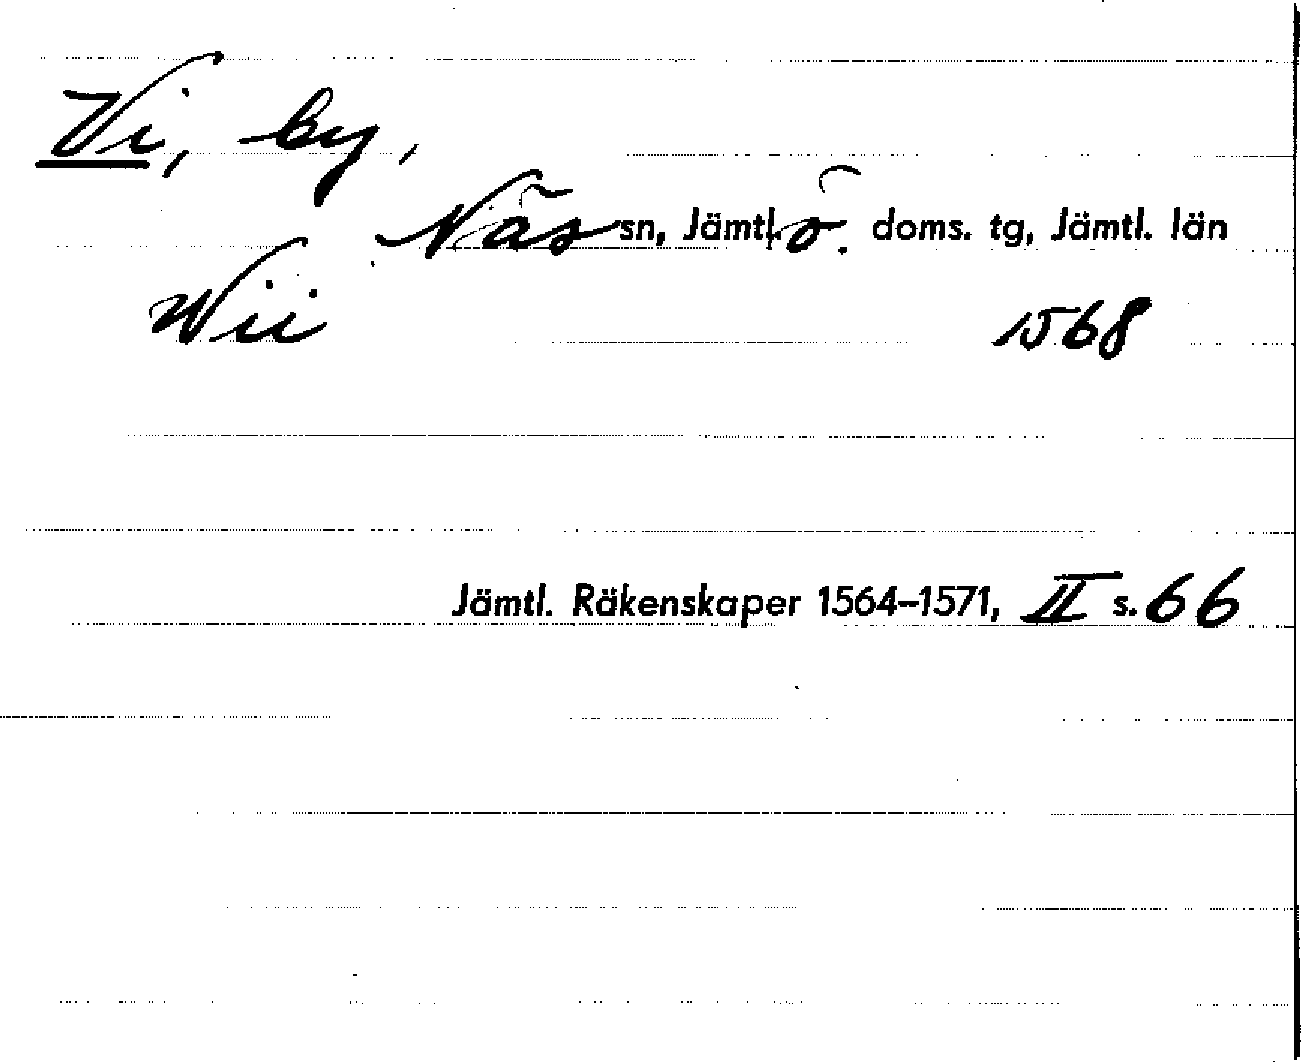 Vi, by,
Näs sn, Jämtl. ö. doms. tg, Jämtl. län
Wii 1568
Jämtl. Räkenskaper 1564–1571, II s. 66